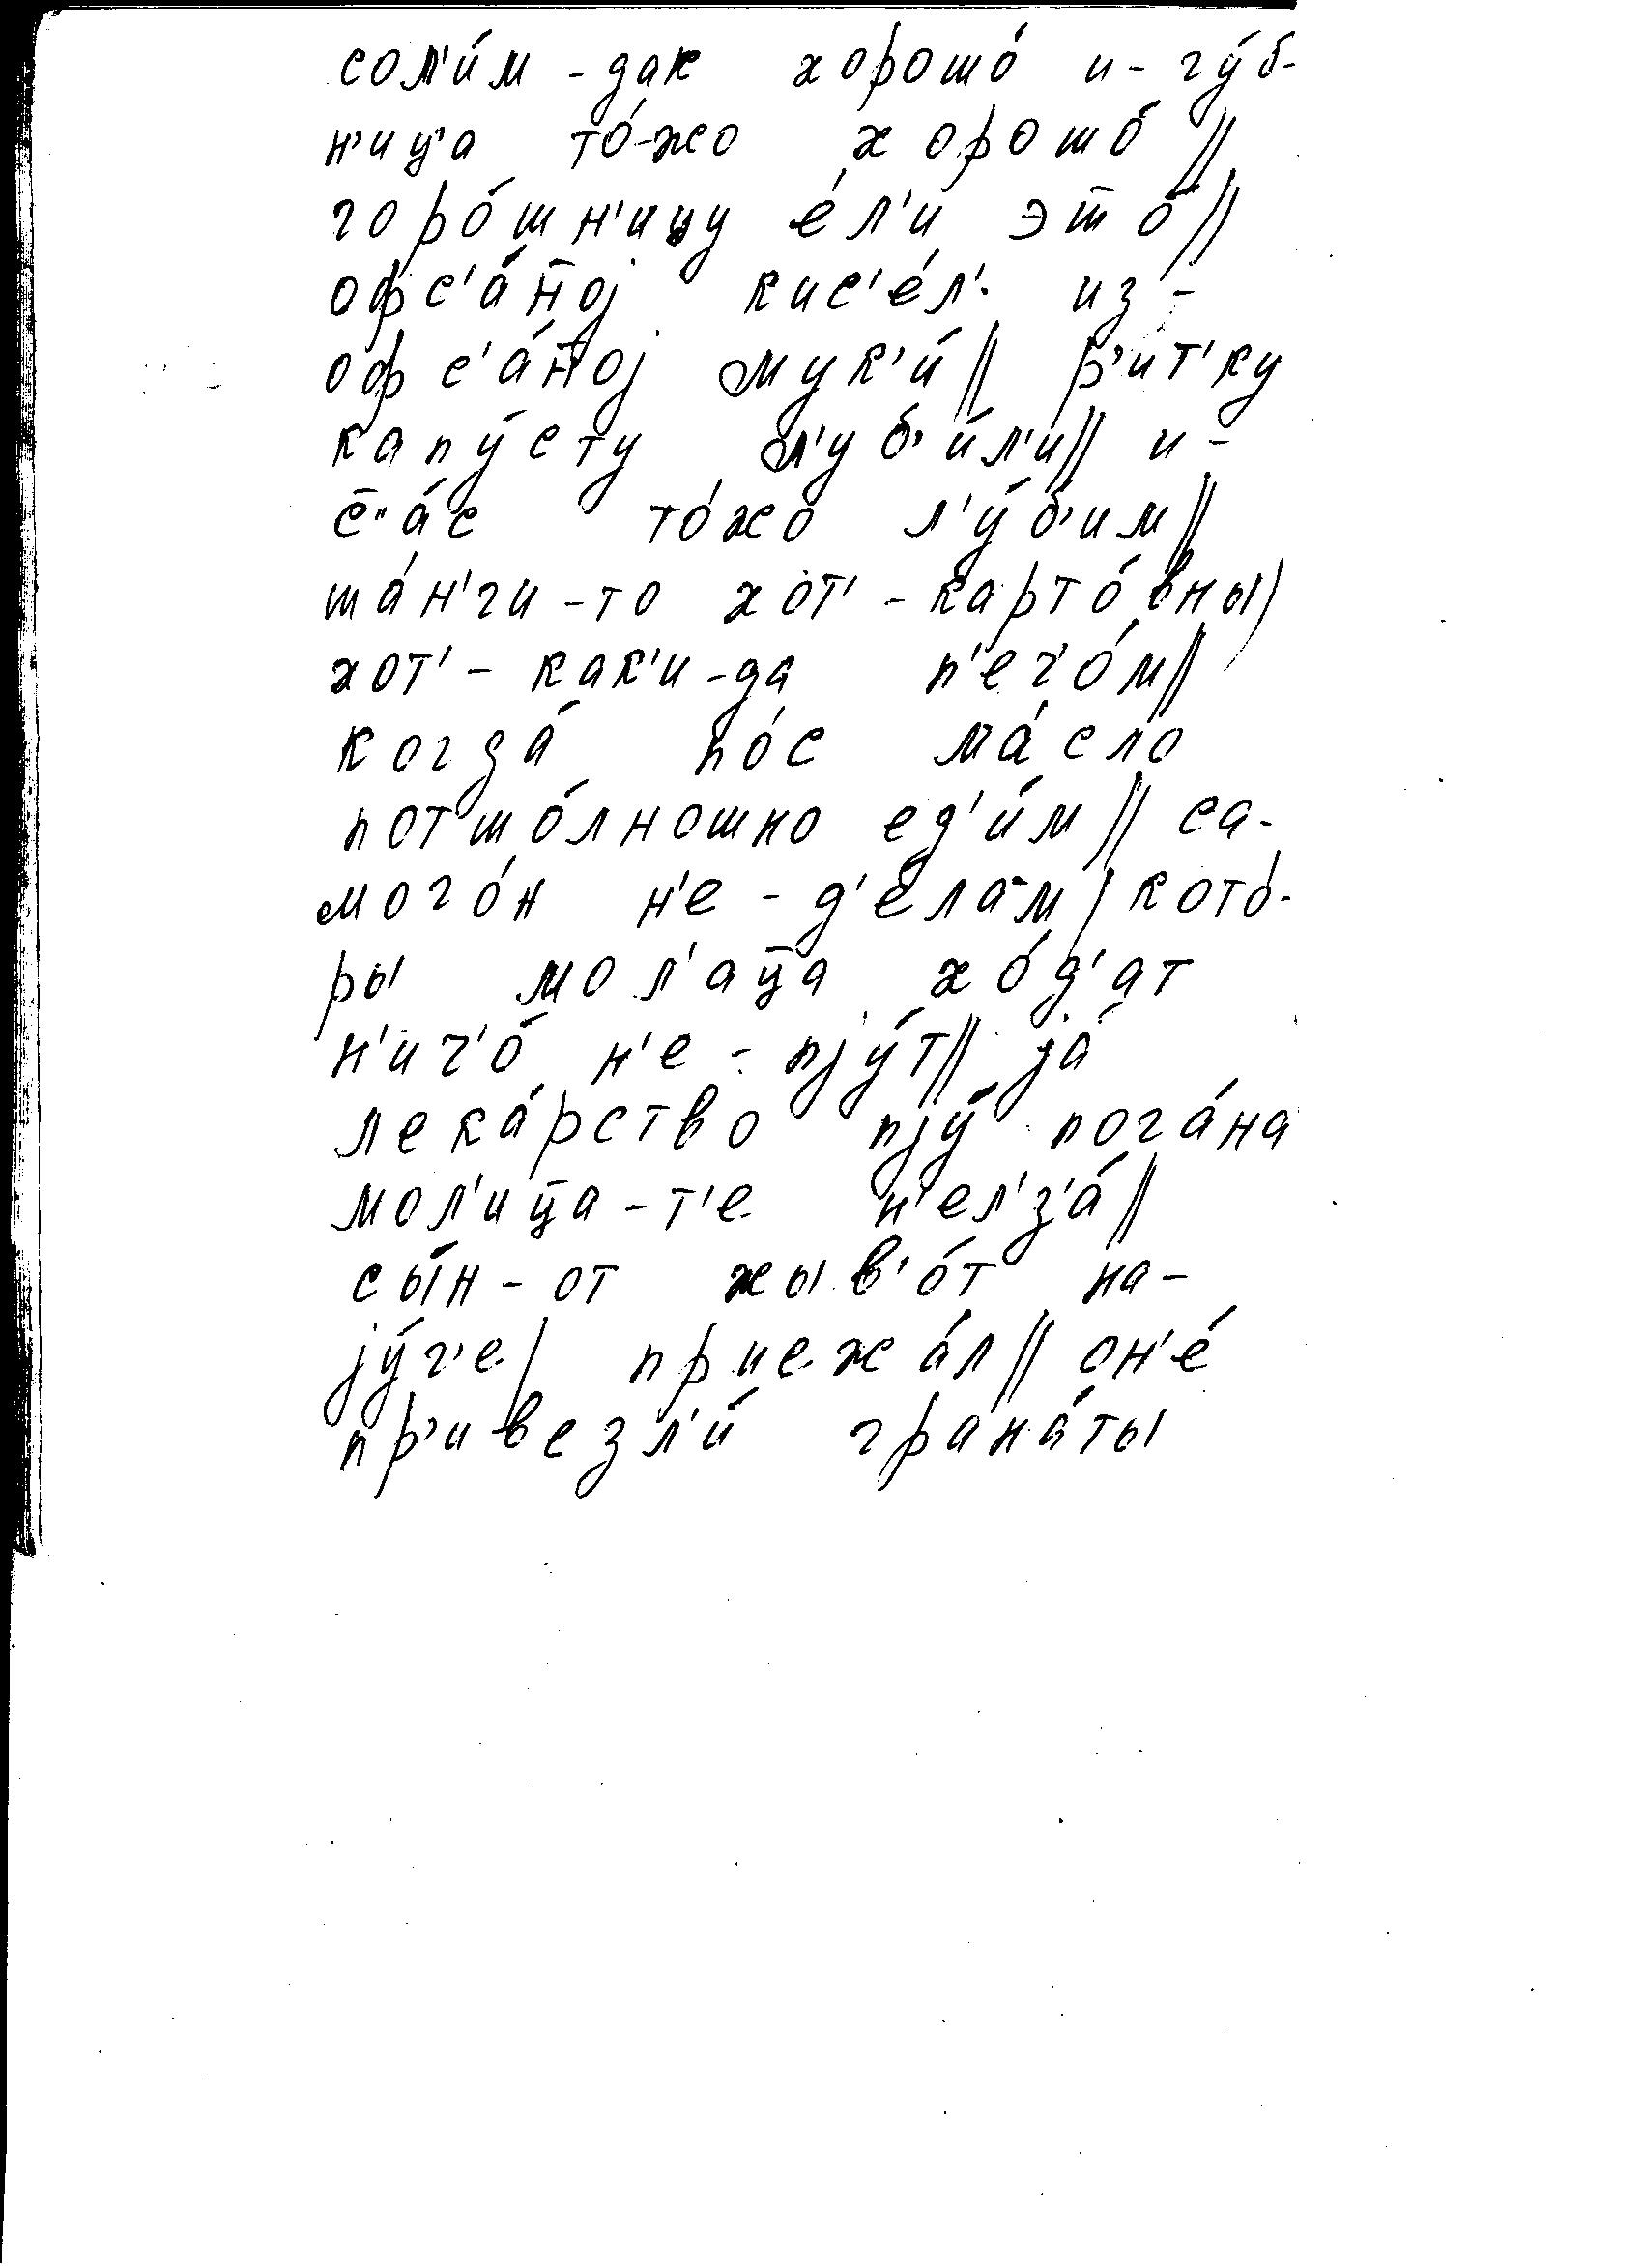 сол'и́м - дак хорошо́ и - гу́б-
н'иц'а то́-жо хорошо́ //
горо́шн'ицу е́л'и э̄то́ //
офс'а́н̄ој кис'е́л'. из -
офс'а́н̄ој мук'и́ // р'ит'ку
капу́сту л'уб'и́л'и // и -
с̄"а́с то́жо л'у́б'им //
ша́н'ги - то хот' - карто́вны /
хот' - как'и - да п'еч'о́м //
когда́ по́с ма́сло
потшо́лношно ед'и́м // са-
мого́н н'е - д'е́лам / кото́-
ры мол'ац̄а хо́д'ат
н'ич'о́ н'е - пју́т // ја́
лека́рство пју́ пога́на
мол'иц̄а - т'е н'ел'з'а́ //
сы́н - от жыв'о́т на -
ју́г'е / приежа́л // он'е́
пр'ивезл'и́ грана́ты